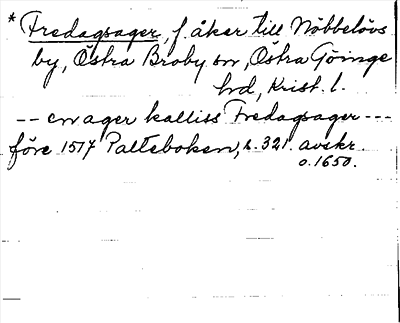 * Fredagsager, f. åker till Nöbbelövs
by, Östra Broby sn, Östra Göinge
hd, Krist. l.
-- en ager kalliss Fredagsager ---
före 1517 Palteboken, s. 321. avskr.
o. 1650.